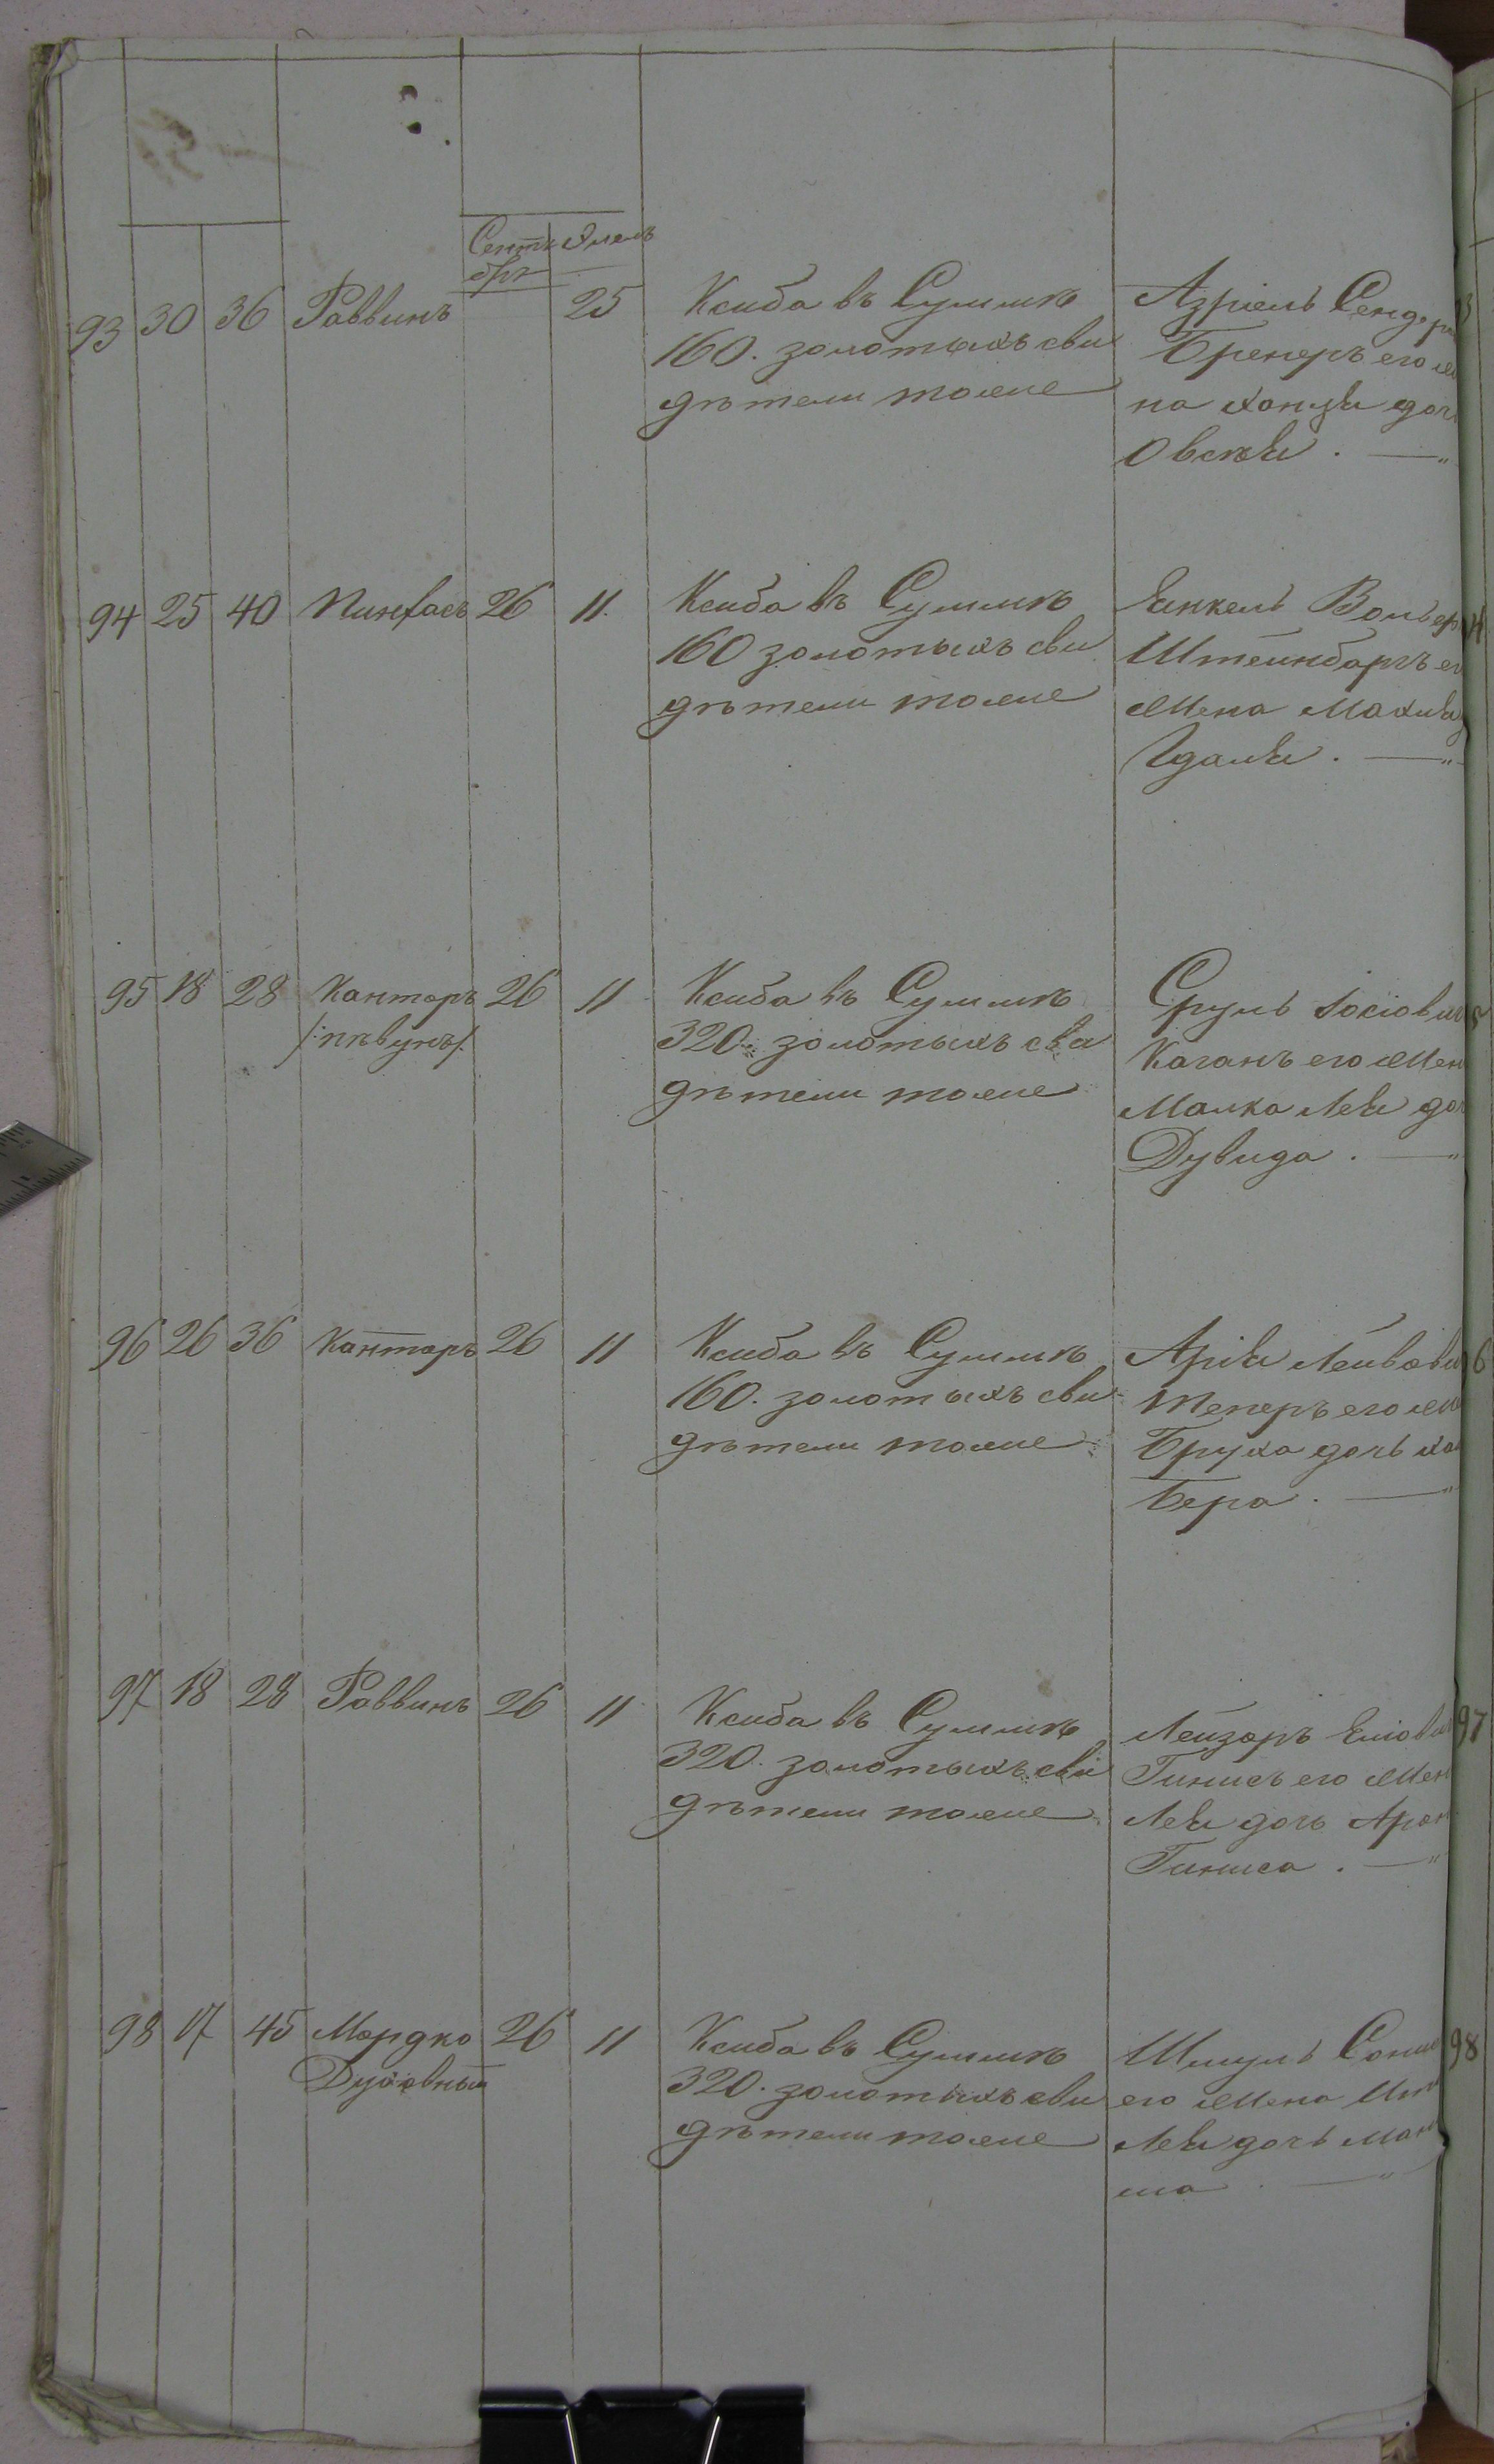 Сентя Элелъ
бря
93 30 36 Раввинъ 25 Ксиба въ Суммѣ
160. золотыхъ сви
дѣтели тоже
Азріель Сендер
Бренеръ его же
на Ханця доч
Овсѣя. — "
94 25 40 Пинхасъ 26 11. Ксиба въ Суммѣ
160 золотыхъ сви
дѣтели тоже
Янкель Вольф
Штейнбаргъ ег
Жена Махля
Гдаля. — "
95 18 28 Канторъ 26 11 Ксиба въ Суммѣ
/:пѣвунъ:/
320. золотыхъ сви
дѣтели тоже
Сруль Іосіович
Каганъ его Жен
Малка Лея доч
Дувида. — "
96 26 36 Канторъ 26 11 Ксиба въ Суммѣ
160. золотыхъ сви
дѣтели тоже
Арія Лейвови
Теперъ его жен
Бруха дочь Ха
Бера. — "
97 18 28 Раввинъ 26 11 Ксиба въ Суммѣ
320. золотыхъ сви
дѣтели тоже
Лейзоръ Еліови
Гинисъ его Жен
Лея дочь Арон
Гиниса. — "
98 17 45 Мордко 26 11 Ксиба въ Суммѣ
Духовный
320. золотыхъ сви
дѣтели тоже
Шмуль
его Жена
Лея дочь Ман
иса. — "
97
98